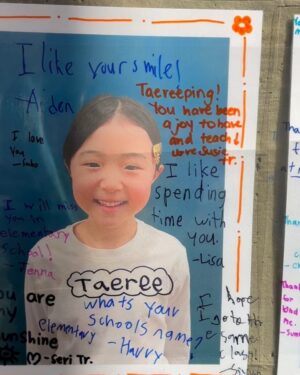 I like your smile!
- Aiden
Taereeping!
You have been
a joy to have
and teach!
Love Susie
Tr.
I love
you
I like
spending
time with
you.
-Lisa
I will miss
you in
elementary
school!
Taeree
whats your
elementary schools name?
-Harry
you are
my
sunshine
♡-Seri Tr.
I hope
I go to the
same
class!